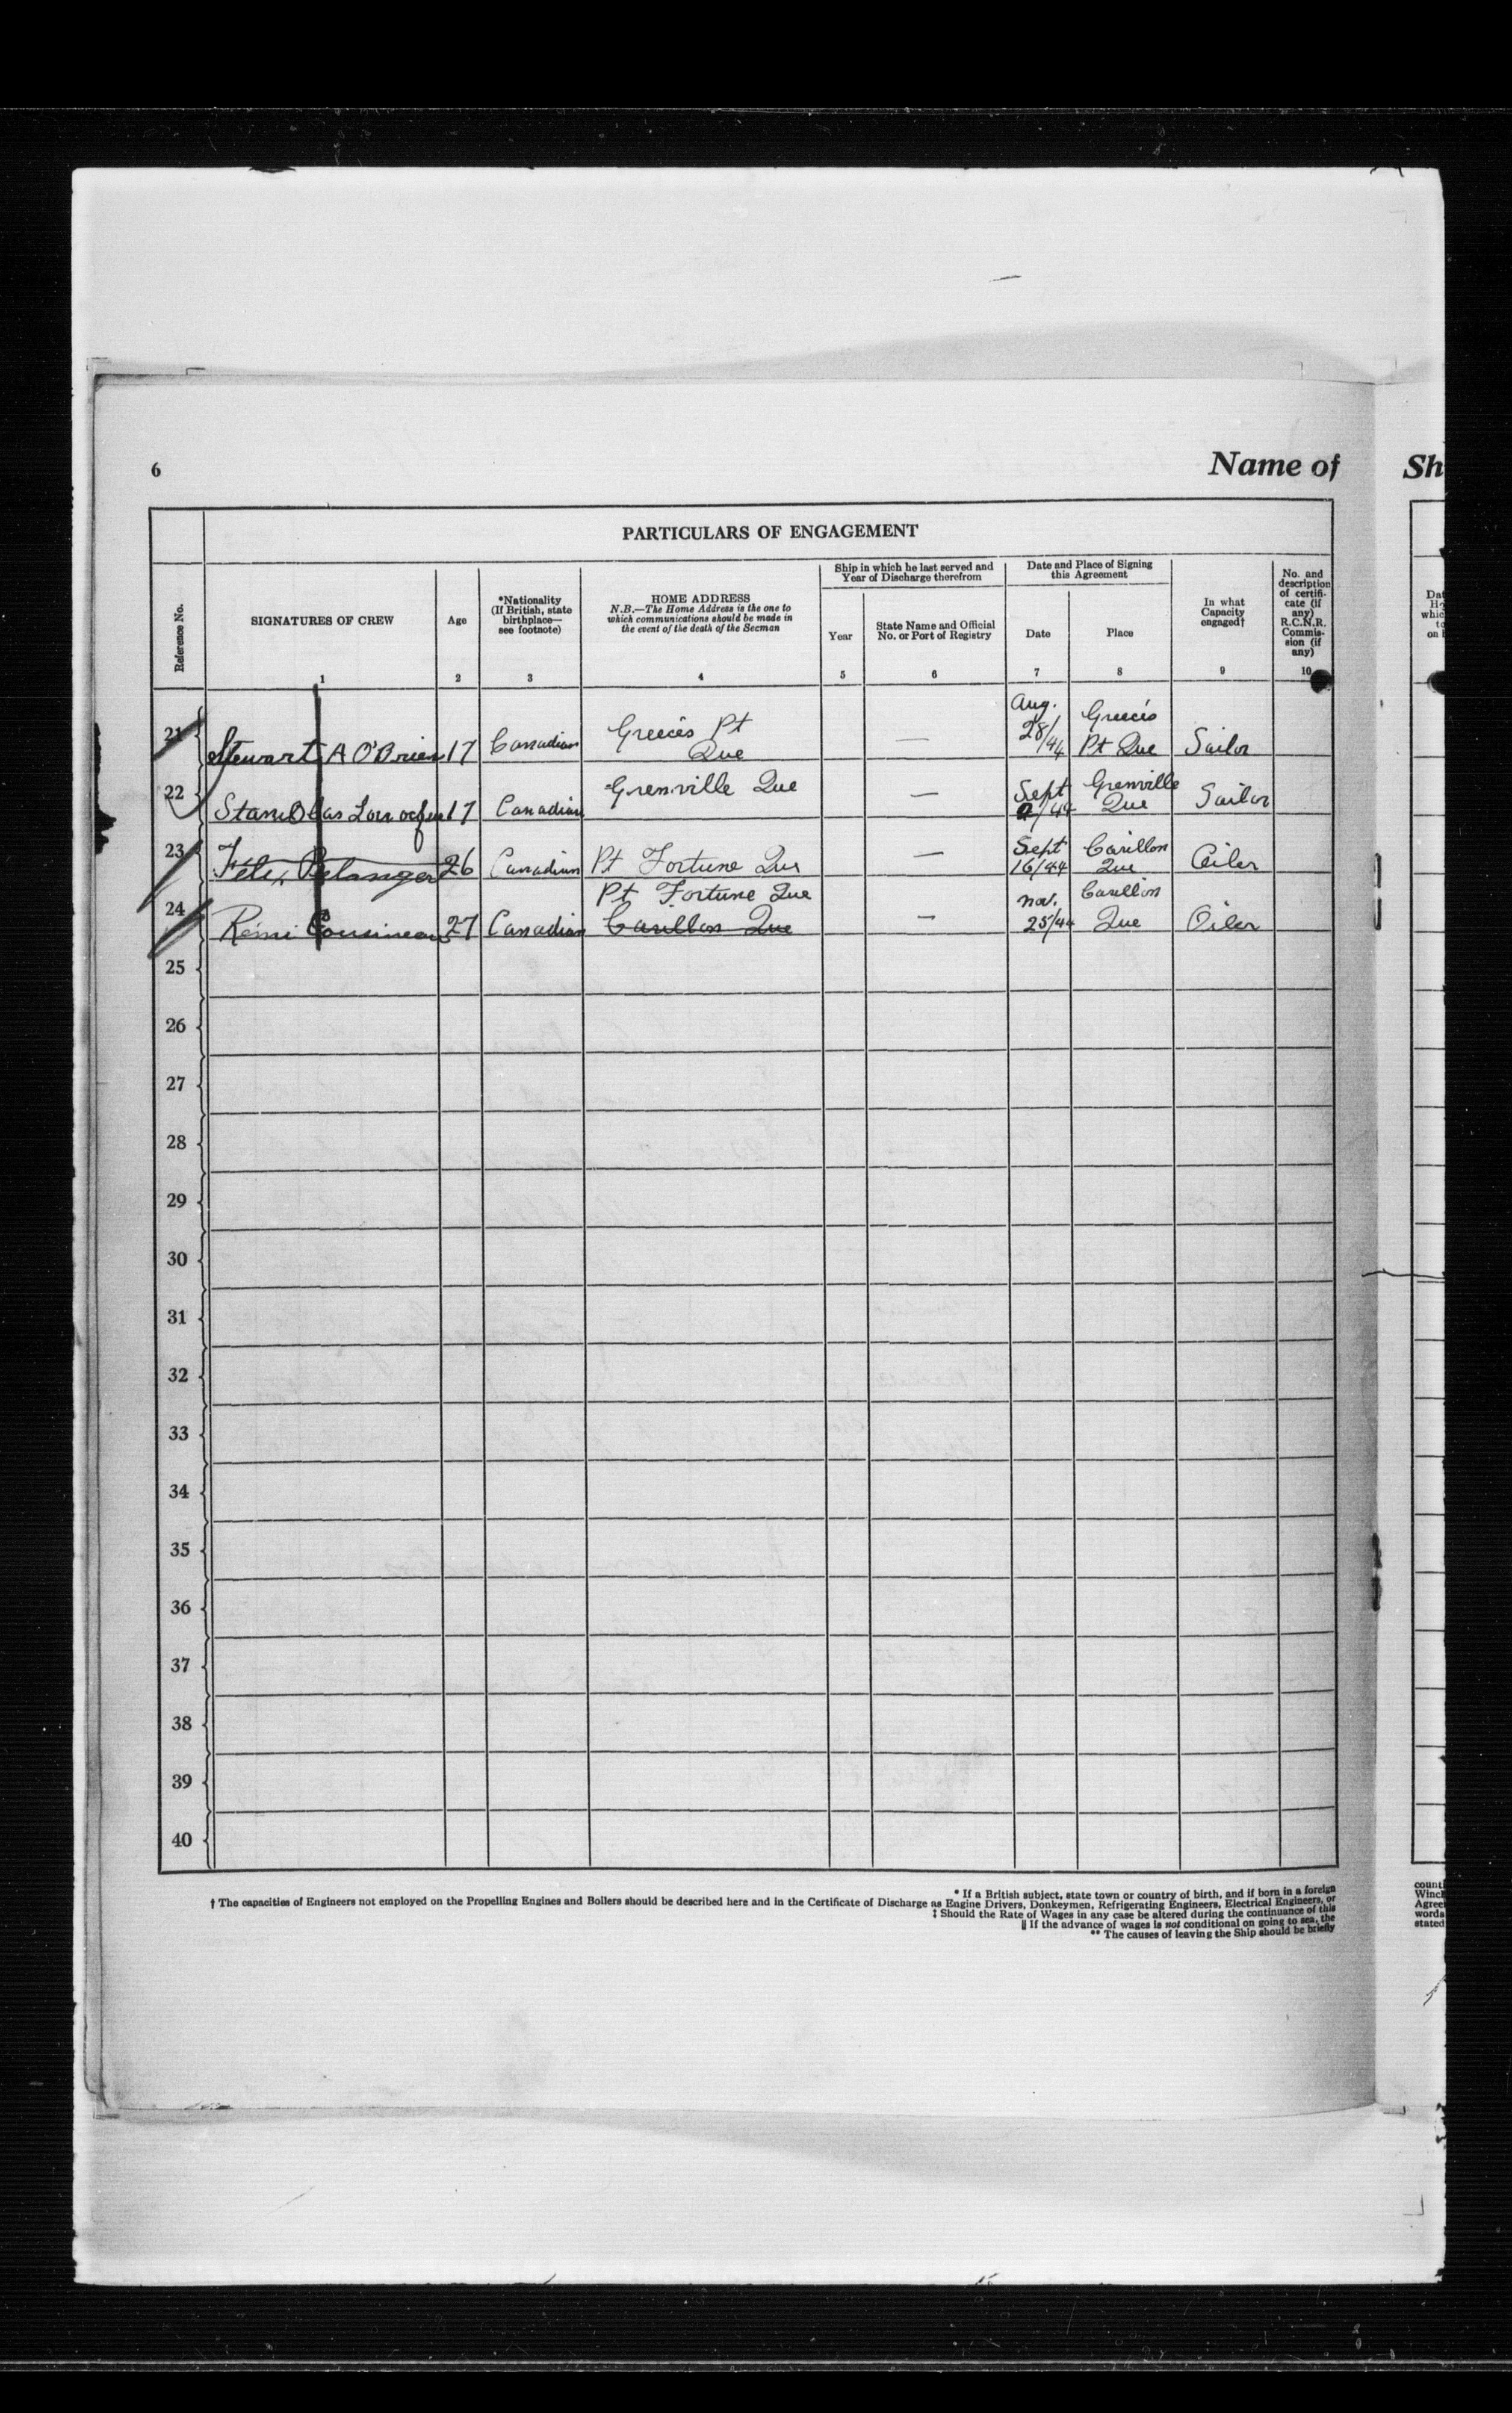 6
Name of
Sh
PARTICULARS OF ENGAGEMENT
Reference No.
SIGNATURES OF CREW
1
Age
2
*Nationality
(If British, state
birthplace—
see footnote)
3
HOME ADDRESS
N.B.—The Home Address is the one to
which communications should be made in
the event of the death of the Seeman
4
Ship in which he last served and
Year of Discharge therefrom
Year
5
State Name and Official
No. or Port of Registry
6
Date and Place of Signing
this Agreement
Date
7
Place
8
In what
Capacity
engaged†
9
No. and
description
of certifi-
cate (if
any)
R.C.N.R.
Commis-
sion (if
any)
10
21 Stewart A O'Brien 17 Canadian Greeces Pt Que — Aug. 28/44 Greeces Pt Que Sailor
22 Stanislas 17 Canadian Grenville Que — Sept /44 Grenville Que Sailor
23 Felix Belanger 26 Canadian Pt Fortune Que — Sept 16/44 Carillon Que Oiler
24 Rémi Cousineau 27 Canadian Pt Fortune Que Carillon Que — Nov. 25/44 Carillon Que Oiler
25
26
27
28
29
30
31
32
33
34
35
36
37
38
39
40
* If a British subject, state town or country of birth, and if born in a foreign
† The capacities of Engineers not employed on the Propelling Engines and Boilers should be described here and in the Certificate of Discharge as Engine Drivers, Donkeymen, Refrigerating Engineers, Electrical Engineers, or
‡ Should the Rate of Wages in any case be altered during the continuance of this
‖ If the advance of wages is not conditional on going to sea, the
** The causes of leaving the Ship should be briefly
Dat
whic
to
on
count
Winch
Agree
words
stated